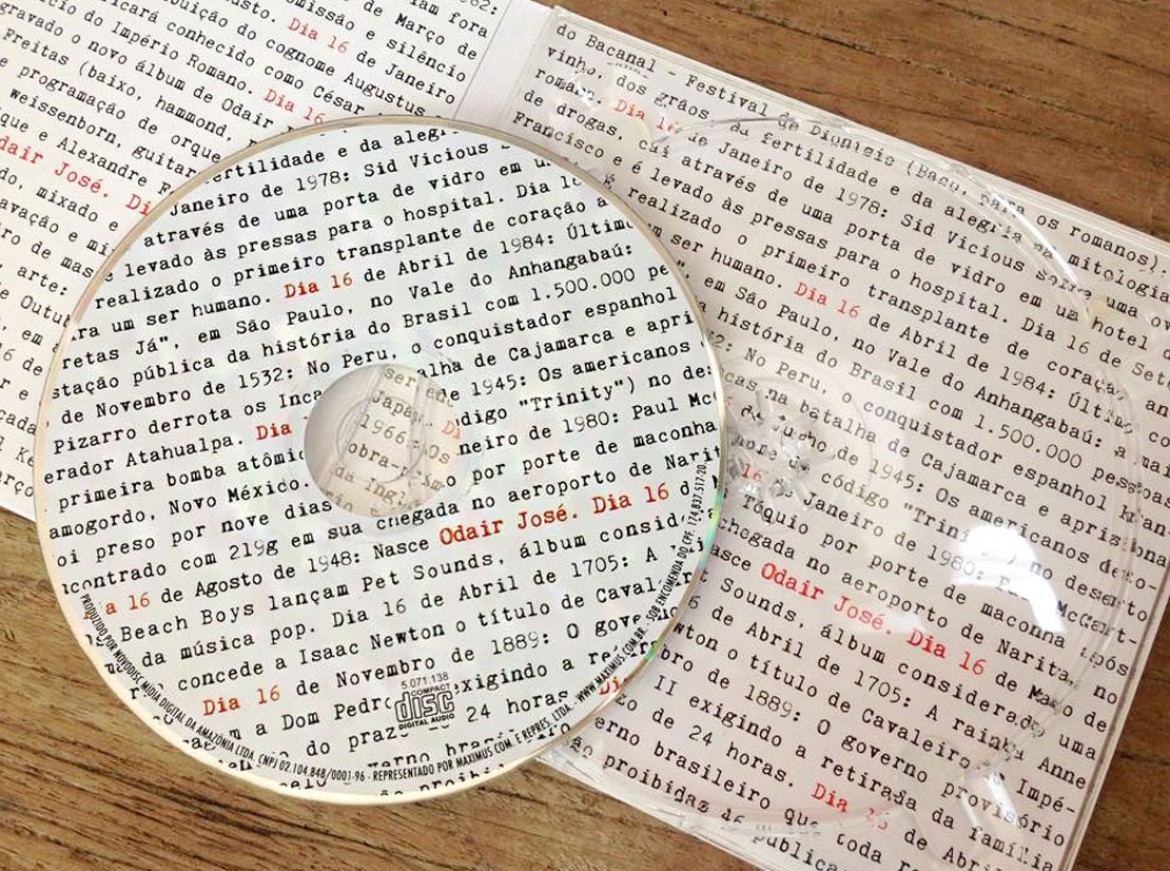 82:
iam fora
omissão e de Março de
usto. Dia 16 e silêncio
ibuição do cognome Augustus de Janeiro
icará conhecido como César
cio do Império Romano. Dia 16
gravado o novo álbum de Odair
Freitas (baixo, hammond,
e programação de orque
weissenborn, guitar
que e Alexandre F
dair José. Di
do, mixado e
avação e mi
ro de mas
arte:
e Outu
em
6 de
r e
çada
l Ke
arço
ertilidade e da alegr
Janeiro de 1978: Sid Vicious
através de uma porta de vidro em u
levado às pressas para o hospital. Dia 1
realizado o primeiro transplante de coração
ra um ser humano. Dia 16 de Abril de 1984: Últim
retas Já", em São Paulo, no Vale do Anhangabaú:
stação pública da história do Brasil com 1.500.000 pe
de Novembro de 1532: No Peru, o conquistador espanhol
Pizarro derrota os Inca alha de Cajamarca e apri
erador Atahualpa. Dia de 1945: Os americanos
primeira bomba atômic digo "Trinity") no de
amogordo, Novo México. neiro de 1980: Paul Mc
oi preso por nove dias o por porte de maconha
contrado com 219g em sua chegada no aeroporto de Narit
a 16 de Agosto de 1948: Nasce Odair José. Dia 16 d
Beach Boys lançam Pet Sounds, álbum consid
da música pop. Dia 16 de Abril de 1705: A
concede a Isaac Newton o título de Caval
Dia 16 de Novembro de 1889: O gove
a Dom Pedr exigindo a re
do praz 24 horas. Di
erno bra
proib
ser
Japã
1966: Os
obra-
da Ingl
5.071.138
COMPACT
disc
DIGITAL AUDIO
PRODUZIDO POR NOVODISC MÍDIA DIGITAL DA AMAZÔNIA LTDA. CNPJ 02.104.848/0001-96 - REPRESENTADO POR MAXIMUS COM. E REPRES. LTDA. - WWW.MAXIMUS.COM.BR - SOB ENCOMENDA DO CPF. 174.837.517-20
do Bacanal - Festival de Dionísio (Baco, para os romanos),
vinho, dos grãos, da fertilidade e da alegria na mitologia
romana. Dia 16 de Janeiro de 1978: Sid Vicious sofre uma ov
de drogas, cai através de uma porta de vidro em um hotel
Francisco e é levado às pressas para o hospital. Dia 16 de Set
é realizado o primeiro transplante de coração
m ser humano. Dia 16 de Abril de 1984: Últi
", em São Paulo, no Vale do Anhangabaú: a
história do Brasil com 1.500.000 pessoa
2: No Peru, o conquistador espanhol
cas na batalha de Cajamarca e aprisiona
Julho de 1945: Os americanos de
código "Trinity") no deserto
16 de Janeiro de 1980: P McCart-
Tóquio por porte de maconha após
chegada no aeroporto de Narita, no
asce Odair José. Dia 16 de Maio de
Sounds, álbum considerado uma
6 de Abril de 1705: A rainha Anne
wton o título de Cavaleiro.
bro de 1889: O governo provisório
II exigindo a retirada da família
zo de 24 horas. Dia 16 de Abri
erno brasileiro que toda
proibidas publica